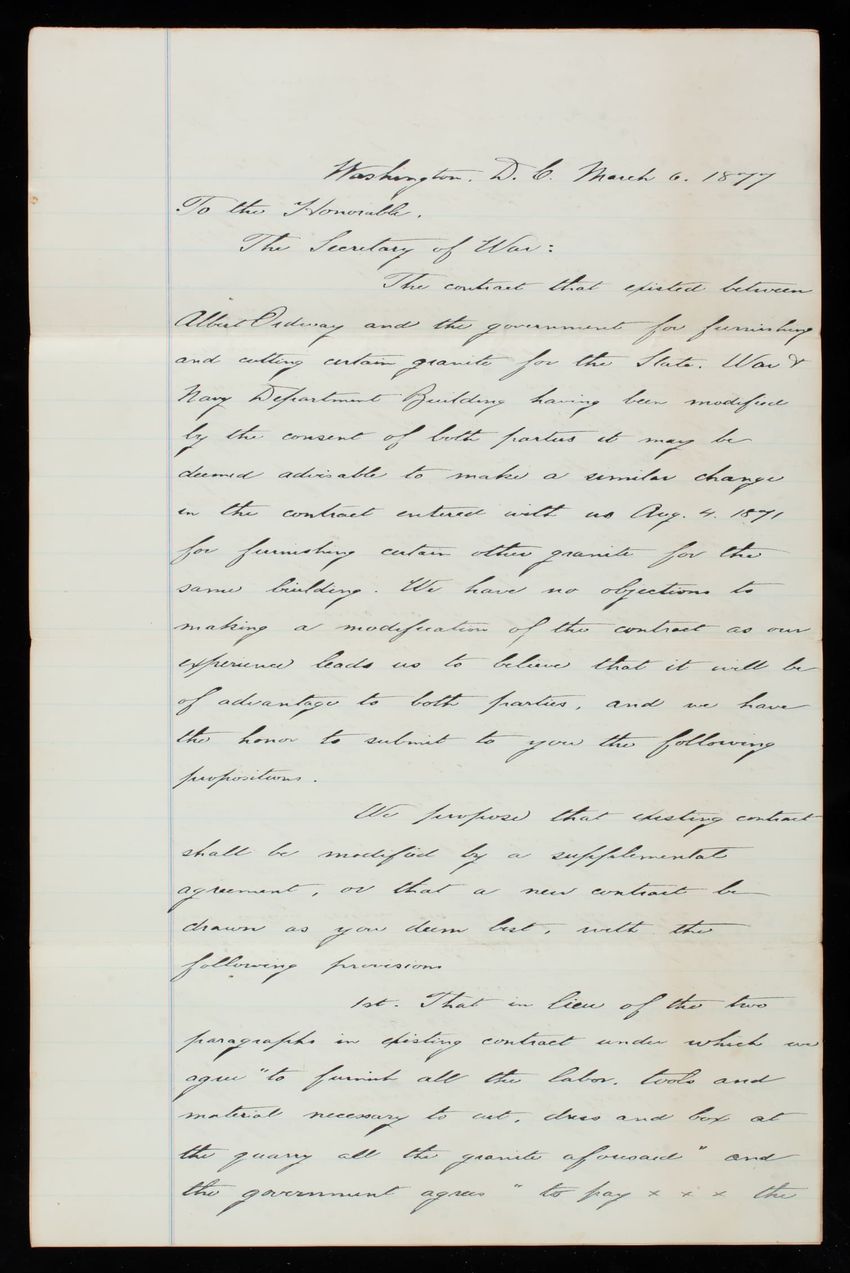 Washington, D. C. March 6. 1877
To the Honorable,
The Secretary of War:
The contract that existed between
Albert Ordway and the government for furnishing
and cutting certain granite for the State, War &
Navy Department Building having been modified
by the consent of both parties it may be
deemed advisable to make a similar change
in the contract entered with us Aug. 4. 1871
for furnishing certain other granite for the
same building. We have no objections to
making a modification of the contract as our
experience leads us to believe that it will be
of advantage to both parties, and we have
the honor to submit to you the following
propositions.
We propose that existing contract
shall be modified by a supplemental
agreement, or that a new contract be
drawn as you deem best, with the
following provisions
1st. That in lieu of the two
paragraphs in existing contract under which we
agree "to furnish all the labor, tools and
material necessary to cut, dress and box at
the quarry all the granite aforesaid" and
the government agrees "to pay x x x the